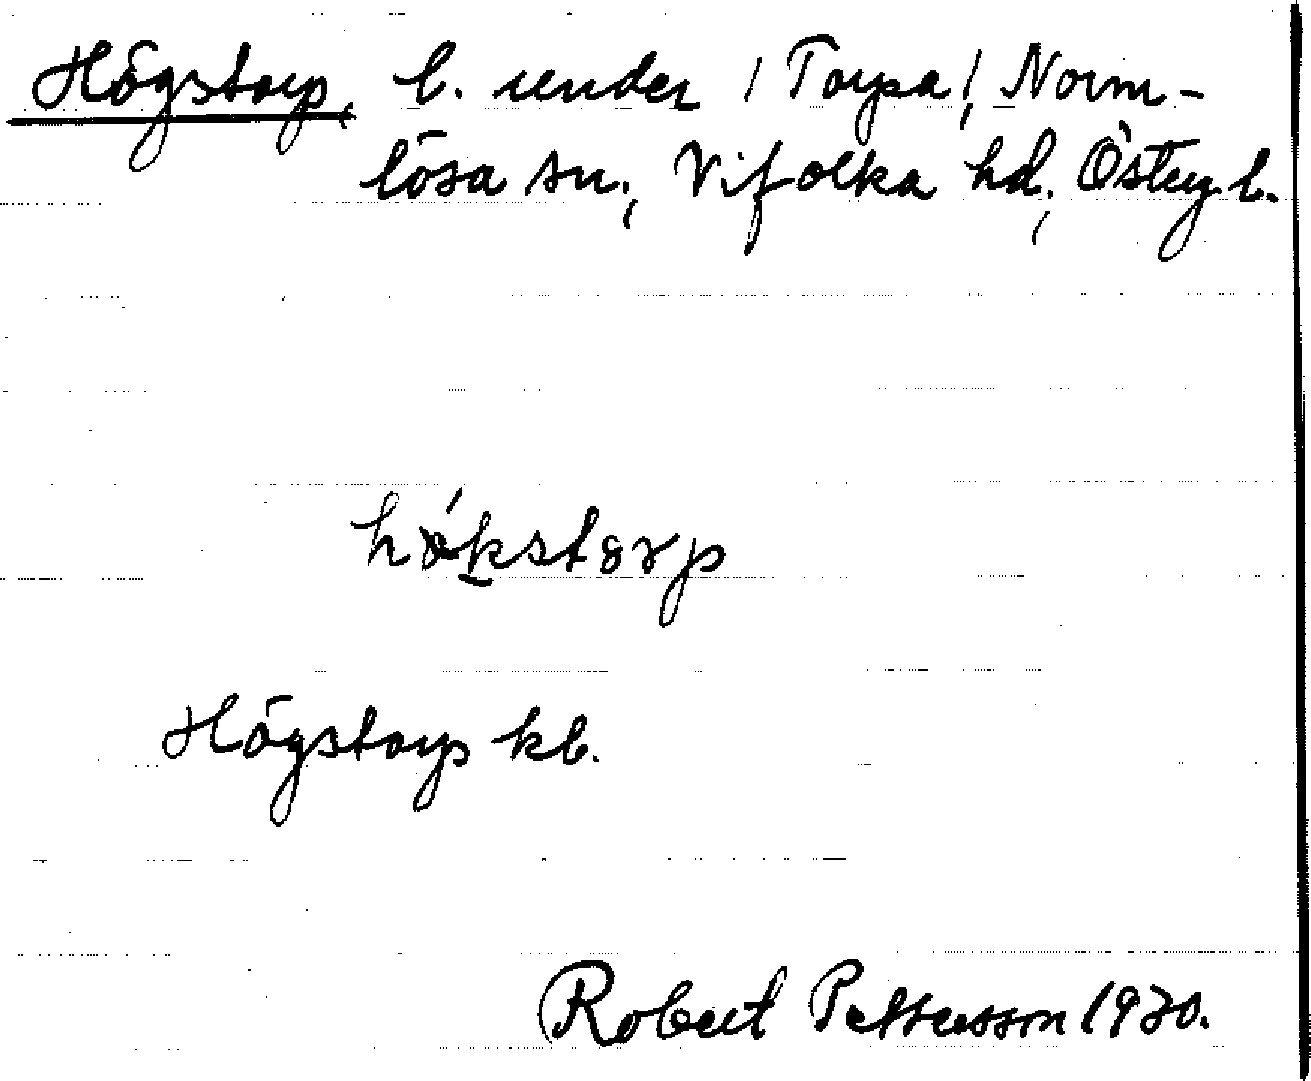 Högstorp, l. under / Torpa /, Norm-
lösa sn., Vifolka hd., Österg. l.
hǿkstorp
Högstorp kb.
Robert Pettersson 1930.